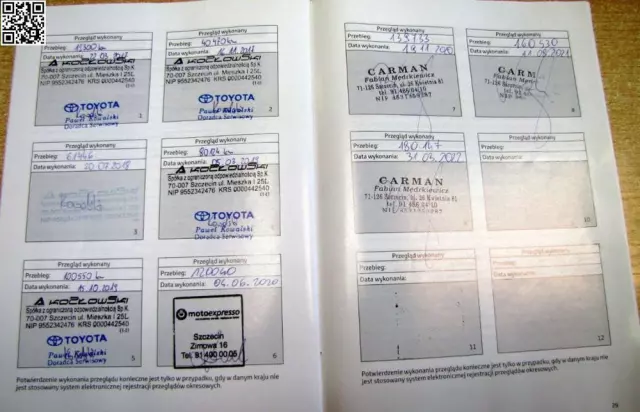 Przegląd wykonany
Przebieg: 19300 km
Data wykonania:
KOZŁOWSKI
Spółka z ograniczoną odpowiedzialnością Sp.K.
70-007 Szczecin ul. Mieszka I 25L
NIP 9552342476 KRS 0000442540
TOYOTA
Paweł Kowalski
Doradca Serwisowy
1
Przegląd wykonany
Przebieg:
Data wykonania: 16.11.2017
KOZŁOWSKI
Spółka z ograniczoną odpowiedzialnością Sp.K.
70-007 Szczecin ul. Mieszka I 25L
NIP 9552342476 KRS 0000442540
TOYOTA
Paweł Kowalski
Doradca Serwisowy
2
Przegląd wykonany
Przebieg:
Data wykonania:
3
Przegląd wykonany
Przebieg:
Data wykonania:
KOZŁOWSKI
Spółka z ograniczoną odpowiedzialnością Sp.K.
70-007 Szczecin ul. Mieszka I 25L
NIP 9552342476 KRS 0000442540
TOYOTA
Paweł Kowalski
Doradca Serwisowy
4
Przegląd wykonany
Przebieg: 100550 km
Data wykonania: 15.10.2019
KOZŁOWSKI
Spółka z ograniczoną odpowiedzialnością Sp.K.
70-007 Szczecin ul. Mieszka I 25L
NIP 9552342476 KRS 0000442540
TOYOTA
Doradca Serwisowy
5
Przegląd wykonany
Przebieg: 120040
Data wykonania: 04.06.2020
motoexpresso
Szczecin
Zimowa 16
Tel. 81 400 00 05
6
Potwierdzenie wykonania przeglądu konieczne jest tylko w przypadku, gdy w danym kraju nie
jest stosowany system elektronicznej rejestracji przeglądów okresowych.
Przegląd wykonany
Przebieg:
Data wykonania: 19.11.2020
CARMAN
Fabian Mędrkiewicz
71-126 Szczecin, ul. 26 Kwietnia 81
tel. 91 486 04 10
7
Przegląd wykonany
Przebieg: 160 430
Data wykonania:
CARM
8
Przegląd wykonany
Przebieg: 180 147
Data wykonania: 31.03.2022
CARMAN
Fabian Mędrkiewicz
71-126 Szczecin, ul. 26 Kwietnia 81
tel. 91 486 04 10
9
Przegląd wykonany
Przebieg:
Data wykonania:
10
Przegląd wykonany
Przebieg:
Data wykonania:
11
Przegląd wykonany
Przebieg:
Data wykonania:
12
Potwierdzenie wykonania przeglądu konieczne jest tylko w przypadku, gdy w danym kraju nie
jest stosowany system elektronicznej rejestracji przeglądów okresowych.